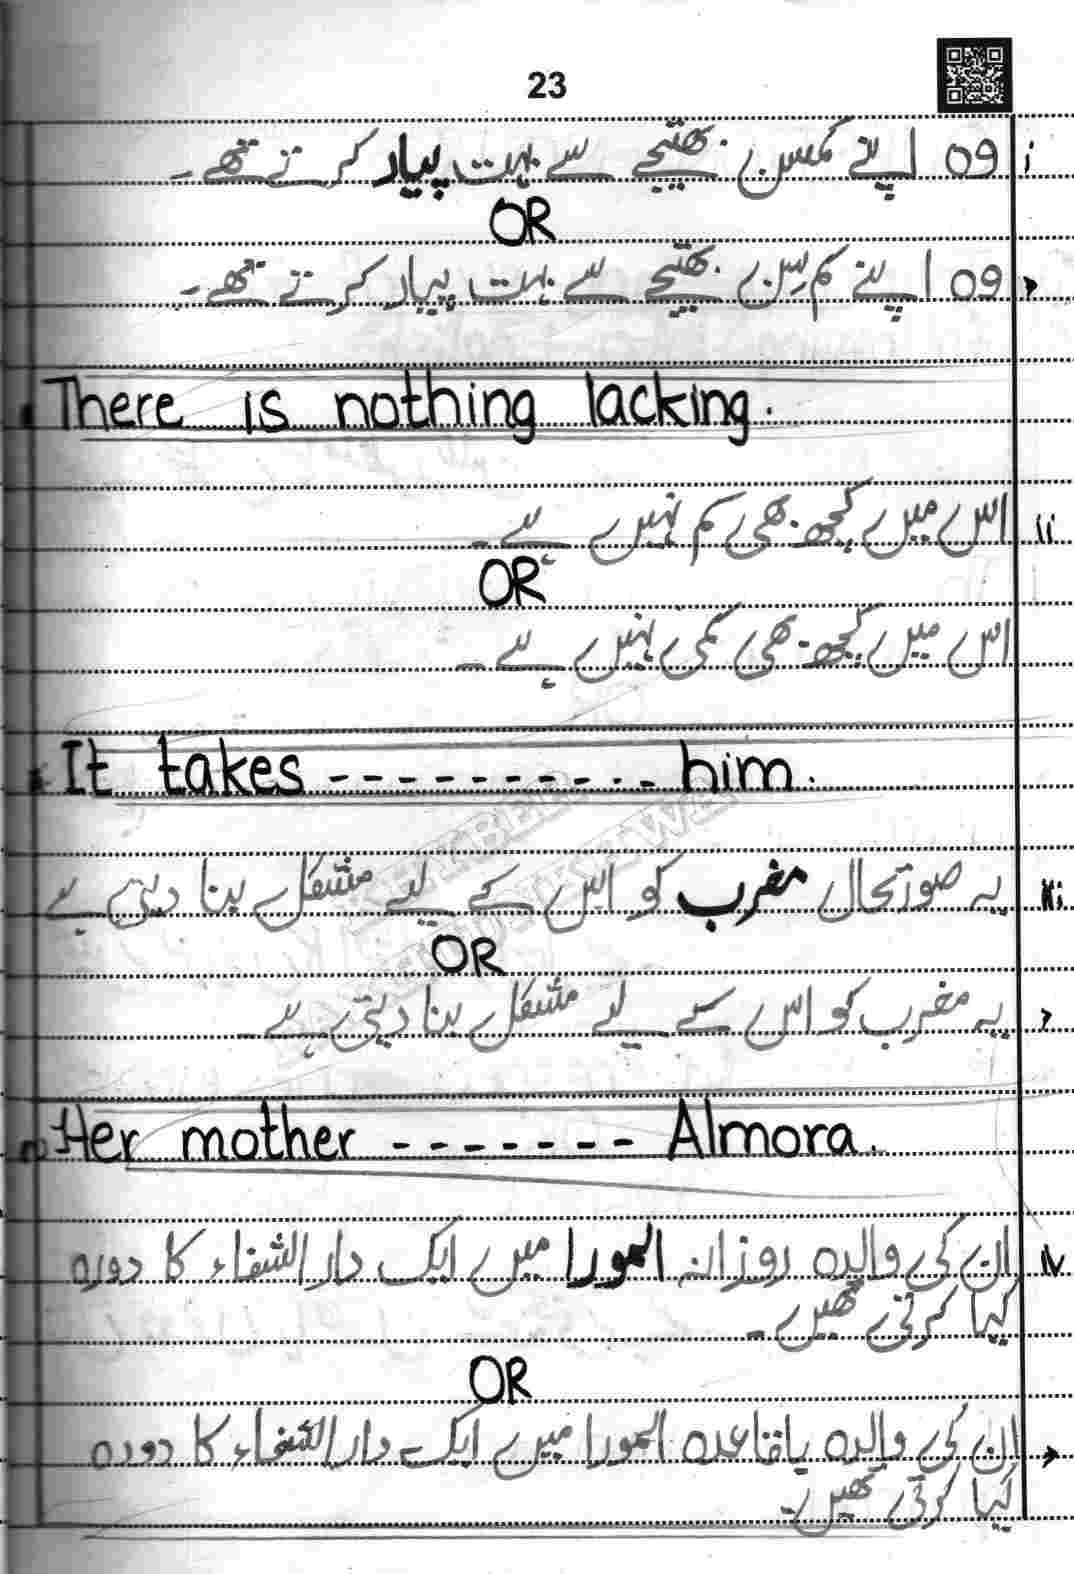 23
i وہ اپنے کمسن بھتیجے سے بہت پیار کرتے تھے۔
OR
وہ اپنے کم سن بھتیجے سے بہت پیار کرتے تھے۔
There is nothing lacking.
ii اس میں کچھ بھی کم نہیں ہے۔
OR
اس میں کچھ بھی کمی نہیں ہے۔
It takes ---------- him.
iii یہ صورتحال مغرب کو اس کے لیے مشکل بنا دیتی ہے
OR
یہ مغرب کو اس کے لیے مشکل بنا دیتی ہے۔
Her mother ------- Almora.
iv ان کی والدہ روزانہ المورا میں ایک دارالشفاء کا دورہ
کیا کرتی تھیں۔
OR
ان کی والدہ باقاعدہ المورا میں ایک دارالشفاء کا دورہ
کیا کرتی تھیں۔